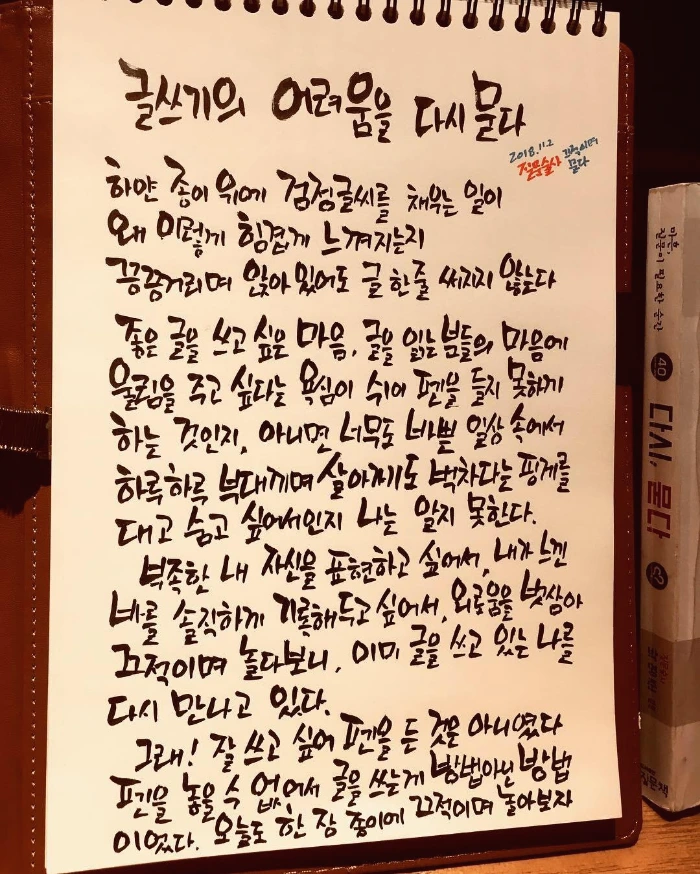 글쓰기의 어려움을 다시 묻다
2018.11.2
질문술사
끄적이며
묻다
하얀 종이 위에 검정글씨를 채우는 일이
왜 이렇게 힘겹게 느껴지는지
끙끙거리며 앉아 있어도 글 한 줄 써지지 않는다
좋은 글을 쓰고 싶은 마음, 글을 읽는 분들의 마음에
울림을 주고 싶다는 욕심이 쉬이 펜을 들지 못하게
하는 것인지, 아니면 너무도 바쁜 일상 속에서
하루하루 부대끼며 살아가기도 벅차다는 핑계를
대고 숨고 싶어서인지 나는 알지 못한다.
부족한 내 자신을 표현하고 싶어서, 내가 느낀
바를 솔직하게 기록해두고 싶어서, 외로움을 벗삼아
끄적이며 놀다보니, 이미 글을 쓰고 있는 나를
다시 만나고 있다.
그래! 잘 쓰고 싶어 펜을 든 것은 아니었다
펜을 놓을 수 없어서 글을 쓰는게 방법아닌 방법
이었다. 오늘도 한 장 종이에 끄적이며 놀아보자
마흔,
질문이 필요한 순간
40
다시, 묻다